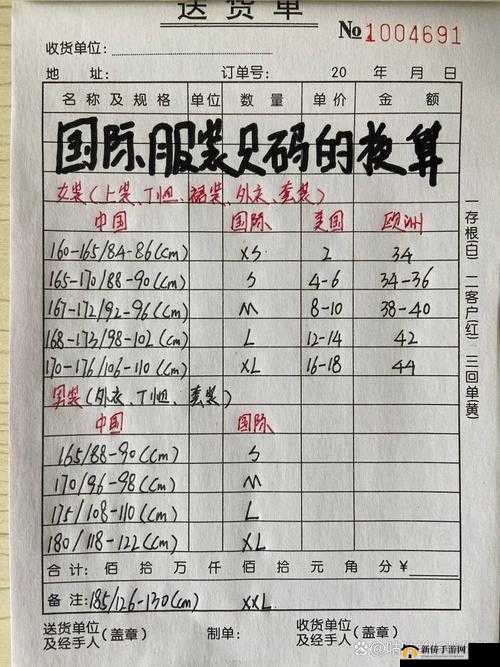 送货单
№1004691
收货单位：
地 址： 订单号： 20 年 月 日
名称及规格 单位 数量 单价 金额
国际服装尺码的换算
女装(上装、T恤、裙装、外衣、套装)
中国 国际 美国 欧洲
160-165/84-86(cm) XS 2 34
165-170/88-90(cm) S 4-6 34-36
167-172/92-96(cm) M 8-10 38-40
168-173/98-102(cm) L 12-14 42
170-176/106-110(cm) XL 16-18 44
男装(外衣、T恤、套装)
中国 国际
165/88-90(cm) S
170/96-98(cm) M
175/108-110(cm) L
180/118-122(cm) XL
合计： 佰 拾 万 仟 佰 拾 元 角 分 ¥
备注：185/126-130(cm) XXL
送货单位及经手人(盖章) 制单： 收货单位及经手人(盖章)
一存根(白) 二客户(红) 三回单(黄)
新侍手游网